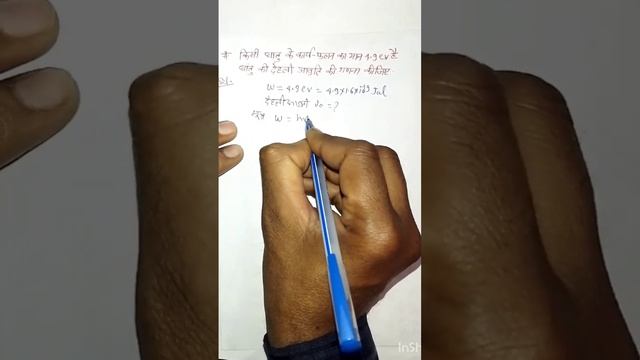 * किसी धातु के कार्य-फलन का मान 4.9 ev है
धातु की देहली आवृति की गणना कीजिए.
W = 4.9 ev = 4.9×1.6×10 Jul
देहली आवृति ν₀ = ?
सूत्र W = hν
InSh